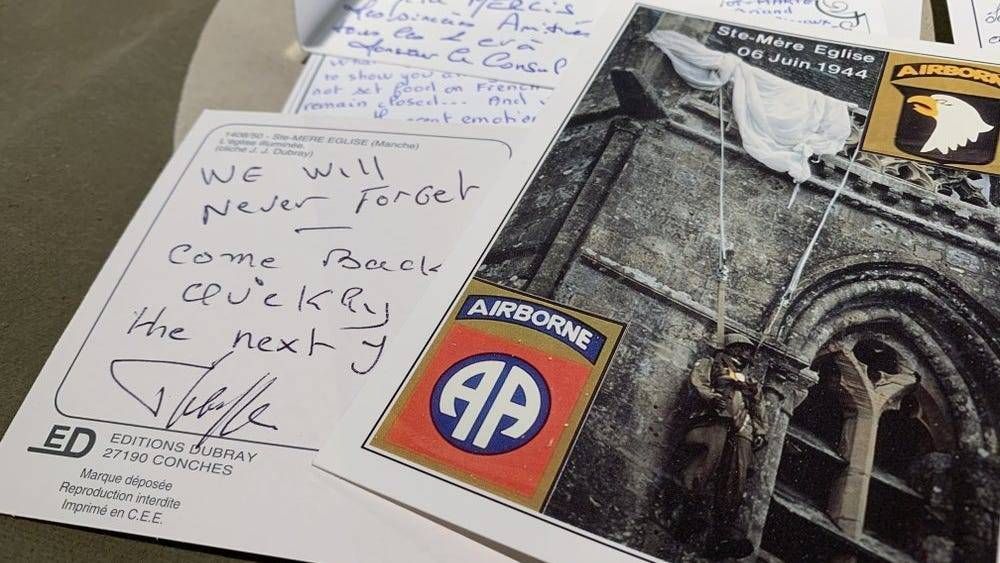 MERCIS
Amitiés
tous les
Monsieur le Consul
to show you
not set food on French
remain closed... And
emotion
1408/50 - Ste-MERE EGLISE (Manche)
L'église illuminée.
(cliché J. J. Dubray)
WE Will
Never Forget
—
Come Back
Quickly
the next y
ED
EDITIONS DUBRAY
27190 CONCHES
Marque déposée
Reproduction interdite
Imprimé en C.E.E.
Ste-Mère Eglise
06 Juin 1944
AIRBORN
AIRBORNE
AA